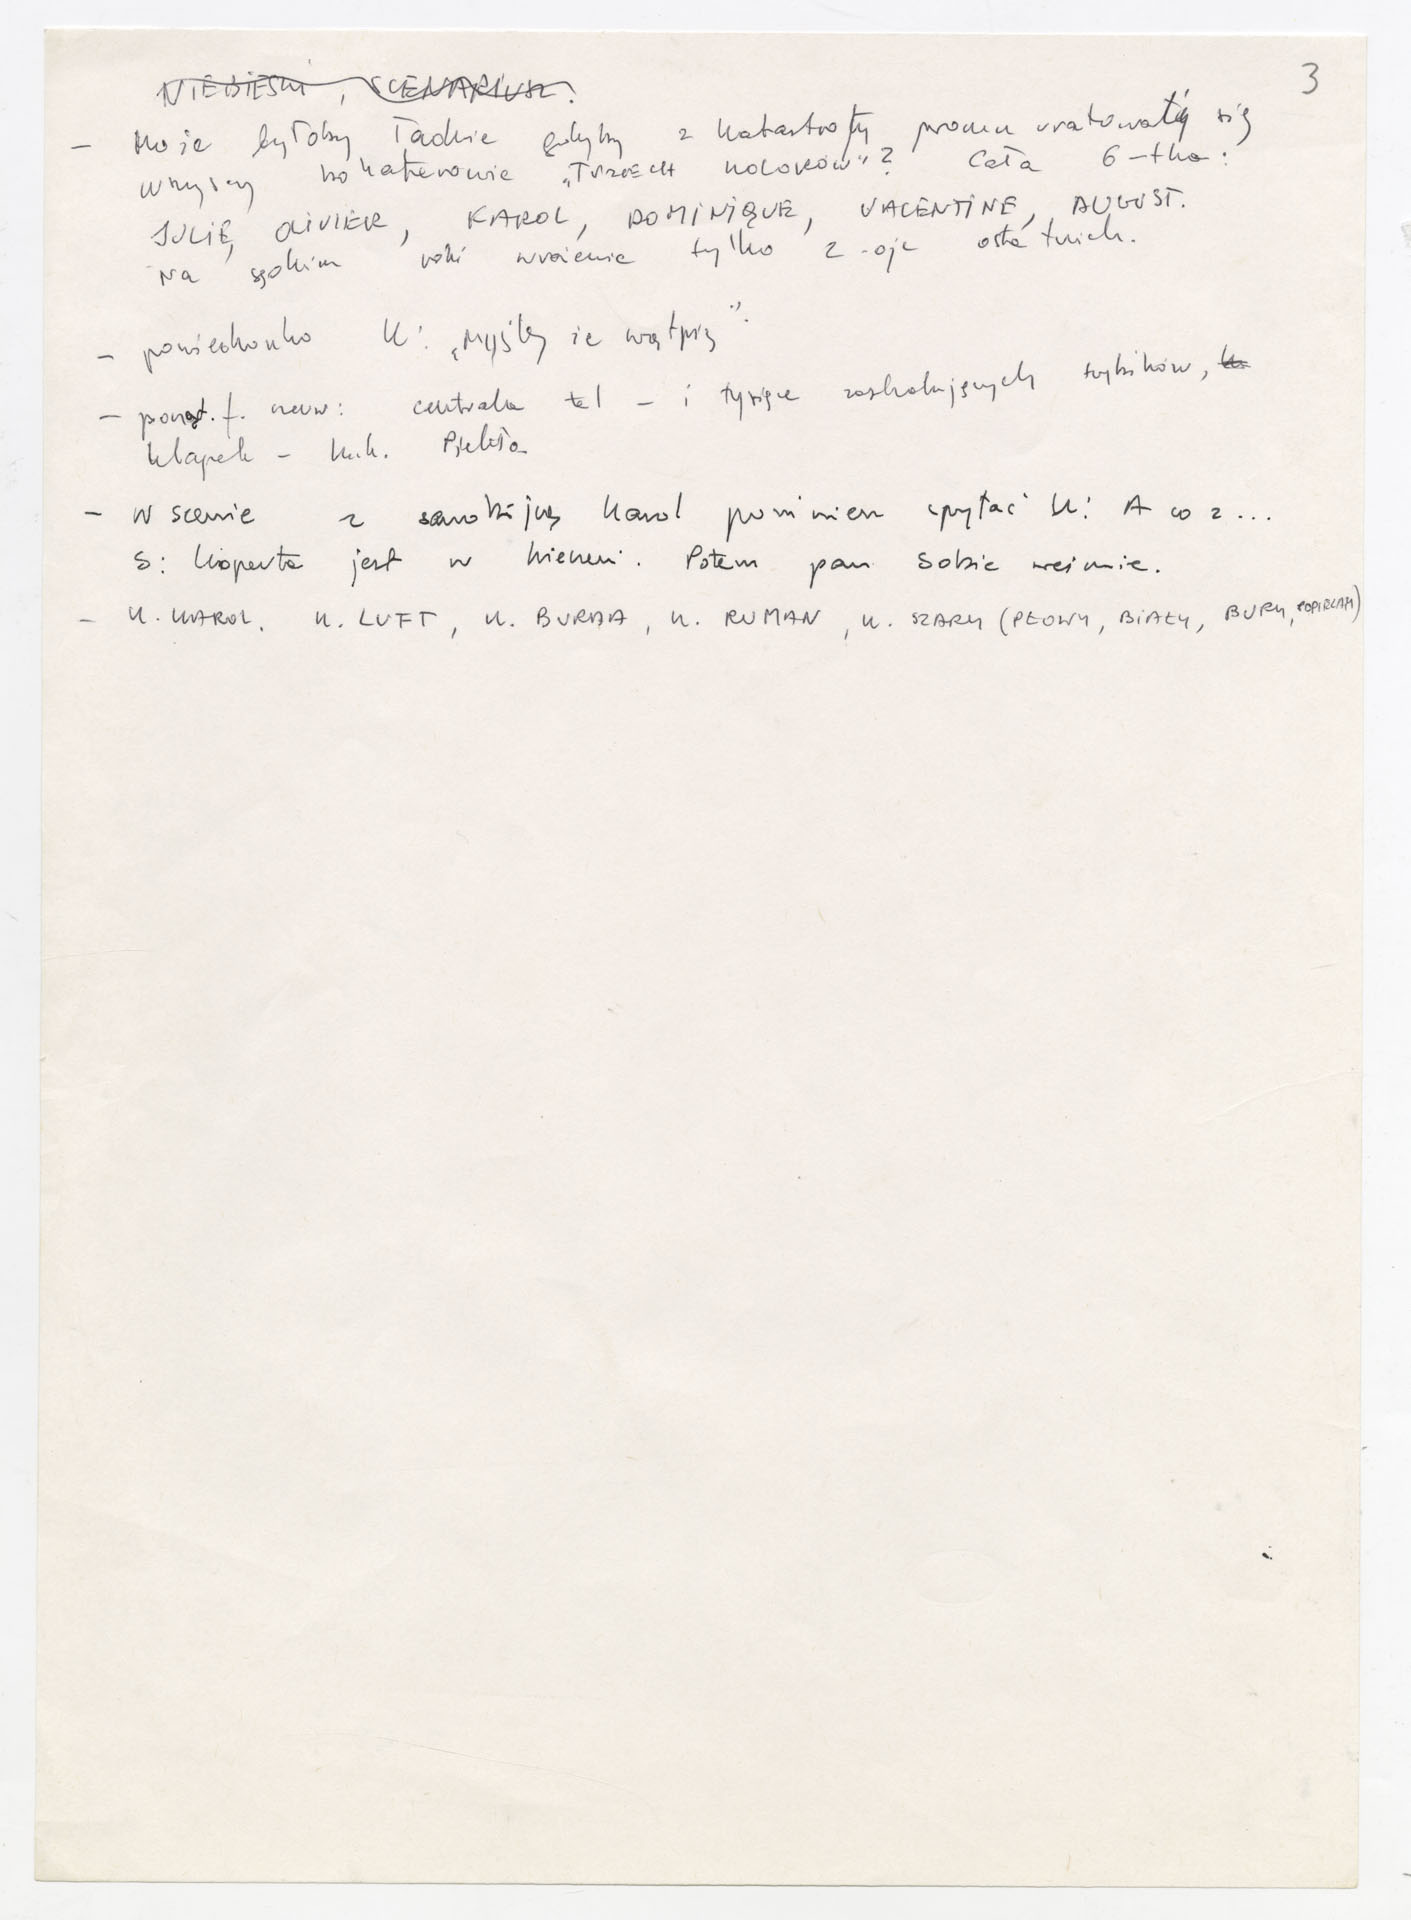 3
NIEBIESKI, SCENARIUSZ.
– Może byłoby ładnie gdyby z katastrofy promu uratowali się
wszyscy bohaterowie „Trzech kolorów"? Cała 6-tka:
JULIE, OLIVIER, KAROL, DOMINIQUE, VALENTINE, AUGUST.
Na sędzim robi wrażenie tylko 2-oje ostatnich.
– powiedzonko K: „Myślę, że wątpię".
– początk. f. czerw: centrala tel – i tysiące zaskakujących trybików,
klapek – k.k. Piekła
– W scenie z samobójcą Karol powinien spytać K: A co z...
S: Koperta jest w kieszeni. Potem pan sobie weźmie.
– K. KAROL. K. LUFT, K. BURDA, K. RUMAN, K. SZARY (PŁOWY, BIAŁY, BURY, POPIELATY)